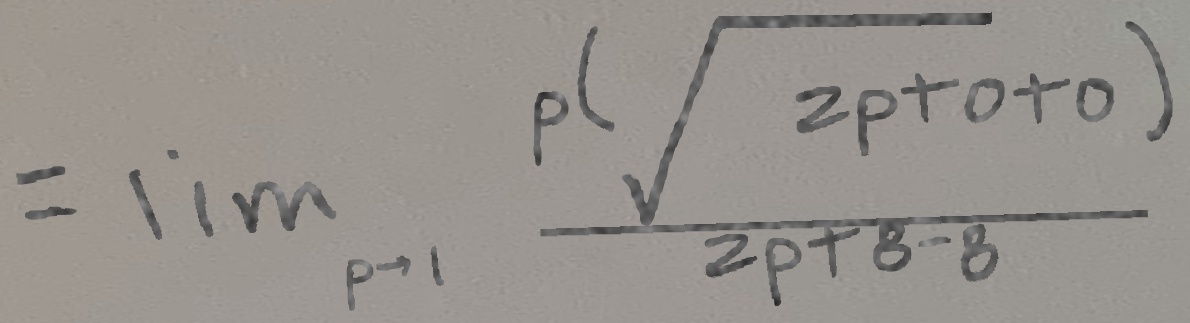 = \lim_{p \to 1} \frac{p(\sqrt{2p+0+0})}{2p+8-8}